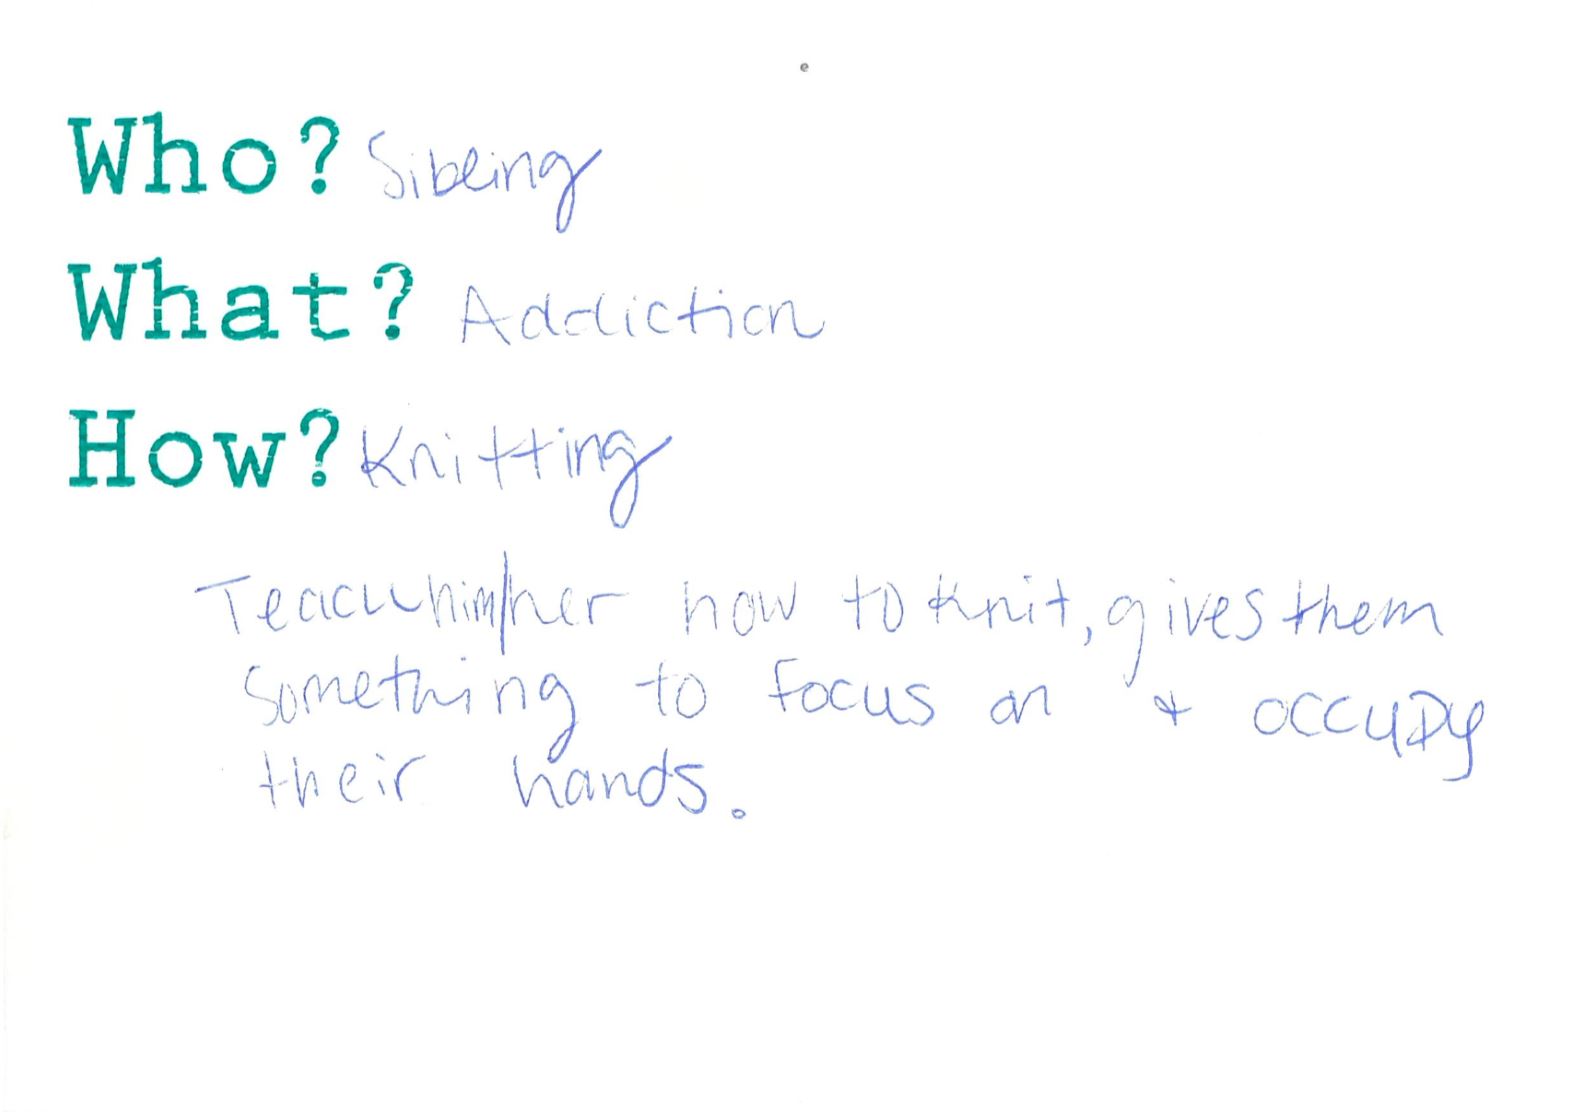 Who? Sibling
What? Addiction
How? Knitting
Teach him/her how to knit, gives them
something to focus on & occupy
their hands.